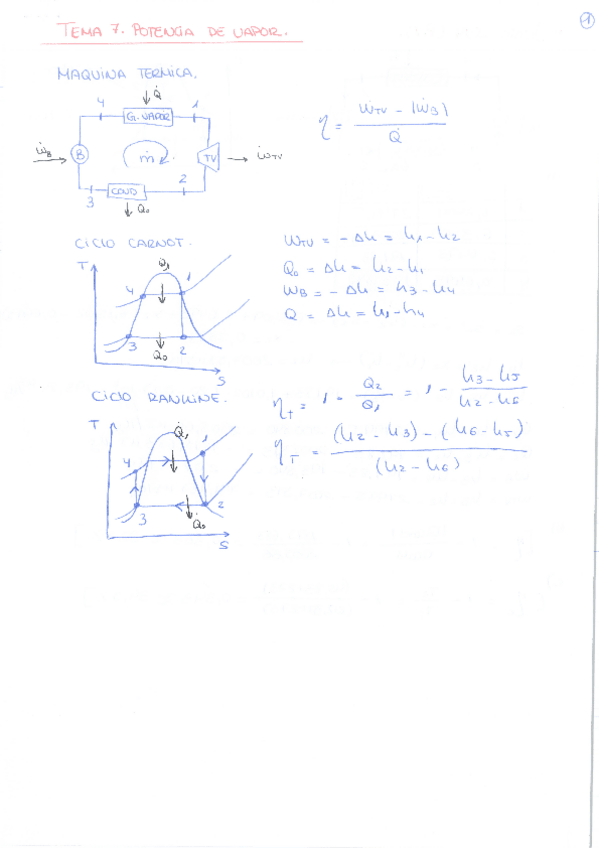 1
TEMA 7. POTENCIA DE VAPOR.
MAQUINA TERMICA.
Q̇
4 G. VAPOR 1
ẇB B ṁ TV ẇTV
3 COND 2
Q̇0
η = (ẇTV - |ẇB|) / Q̇
CICLO CARNOT.
T Q̇1 4 1 3 Q̇0 2 S
WTV = - Δh = h1 - h2
Q0 = Δh = h2 - h1
WB = - Δh = h3 - h4
Q = Δh = h1 - h4
CICLO RANKINE.
T Q̇1 1 4 3 2 Q̇0 S
ηt = 1 - Q2 / Q1 = 1 - (h3 - h5) / (h2 - h6)
ηT = ((h2 - h3) - (h6 - h5)) / (h2 - h6)